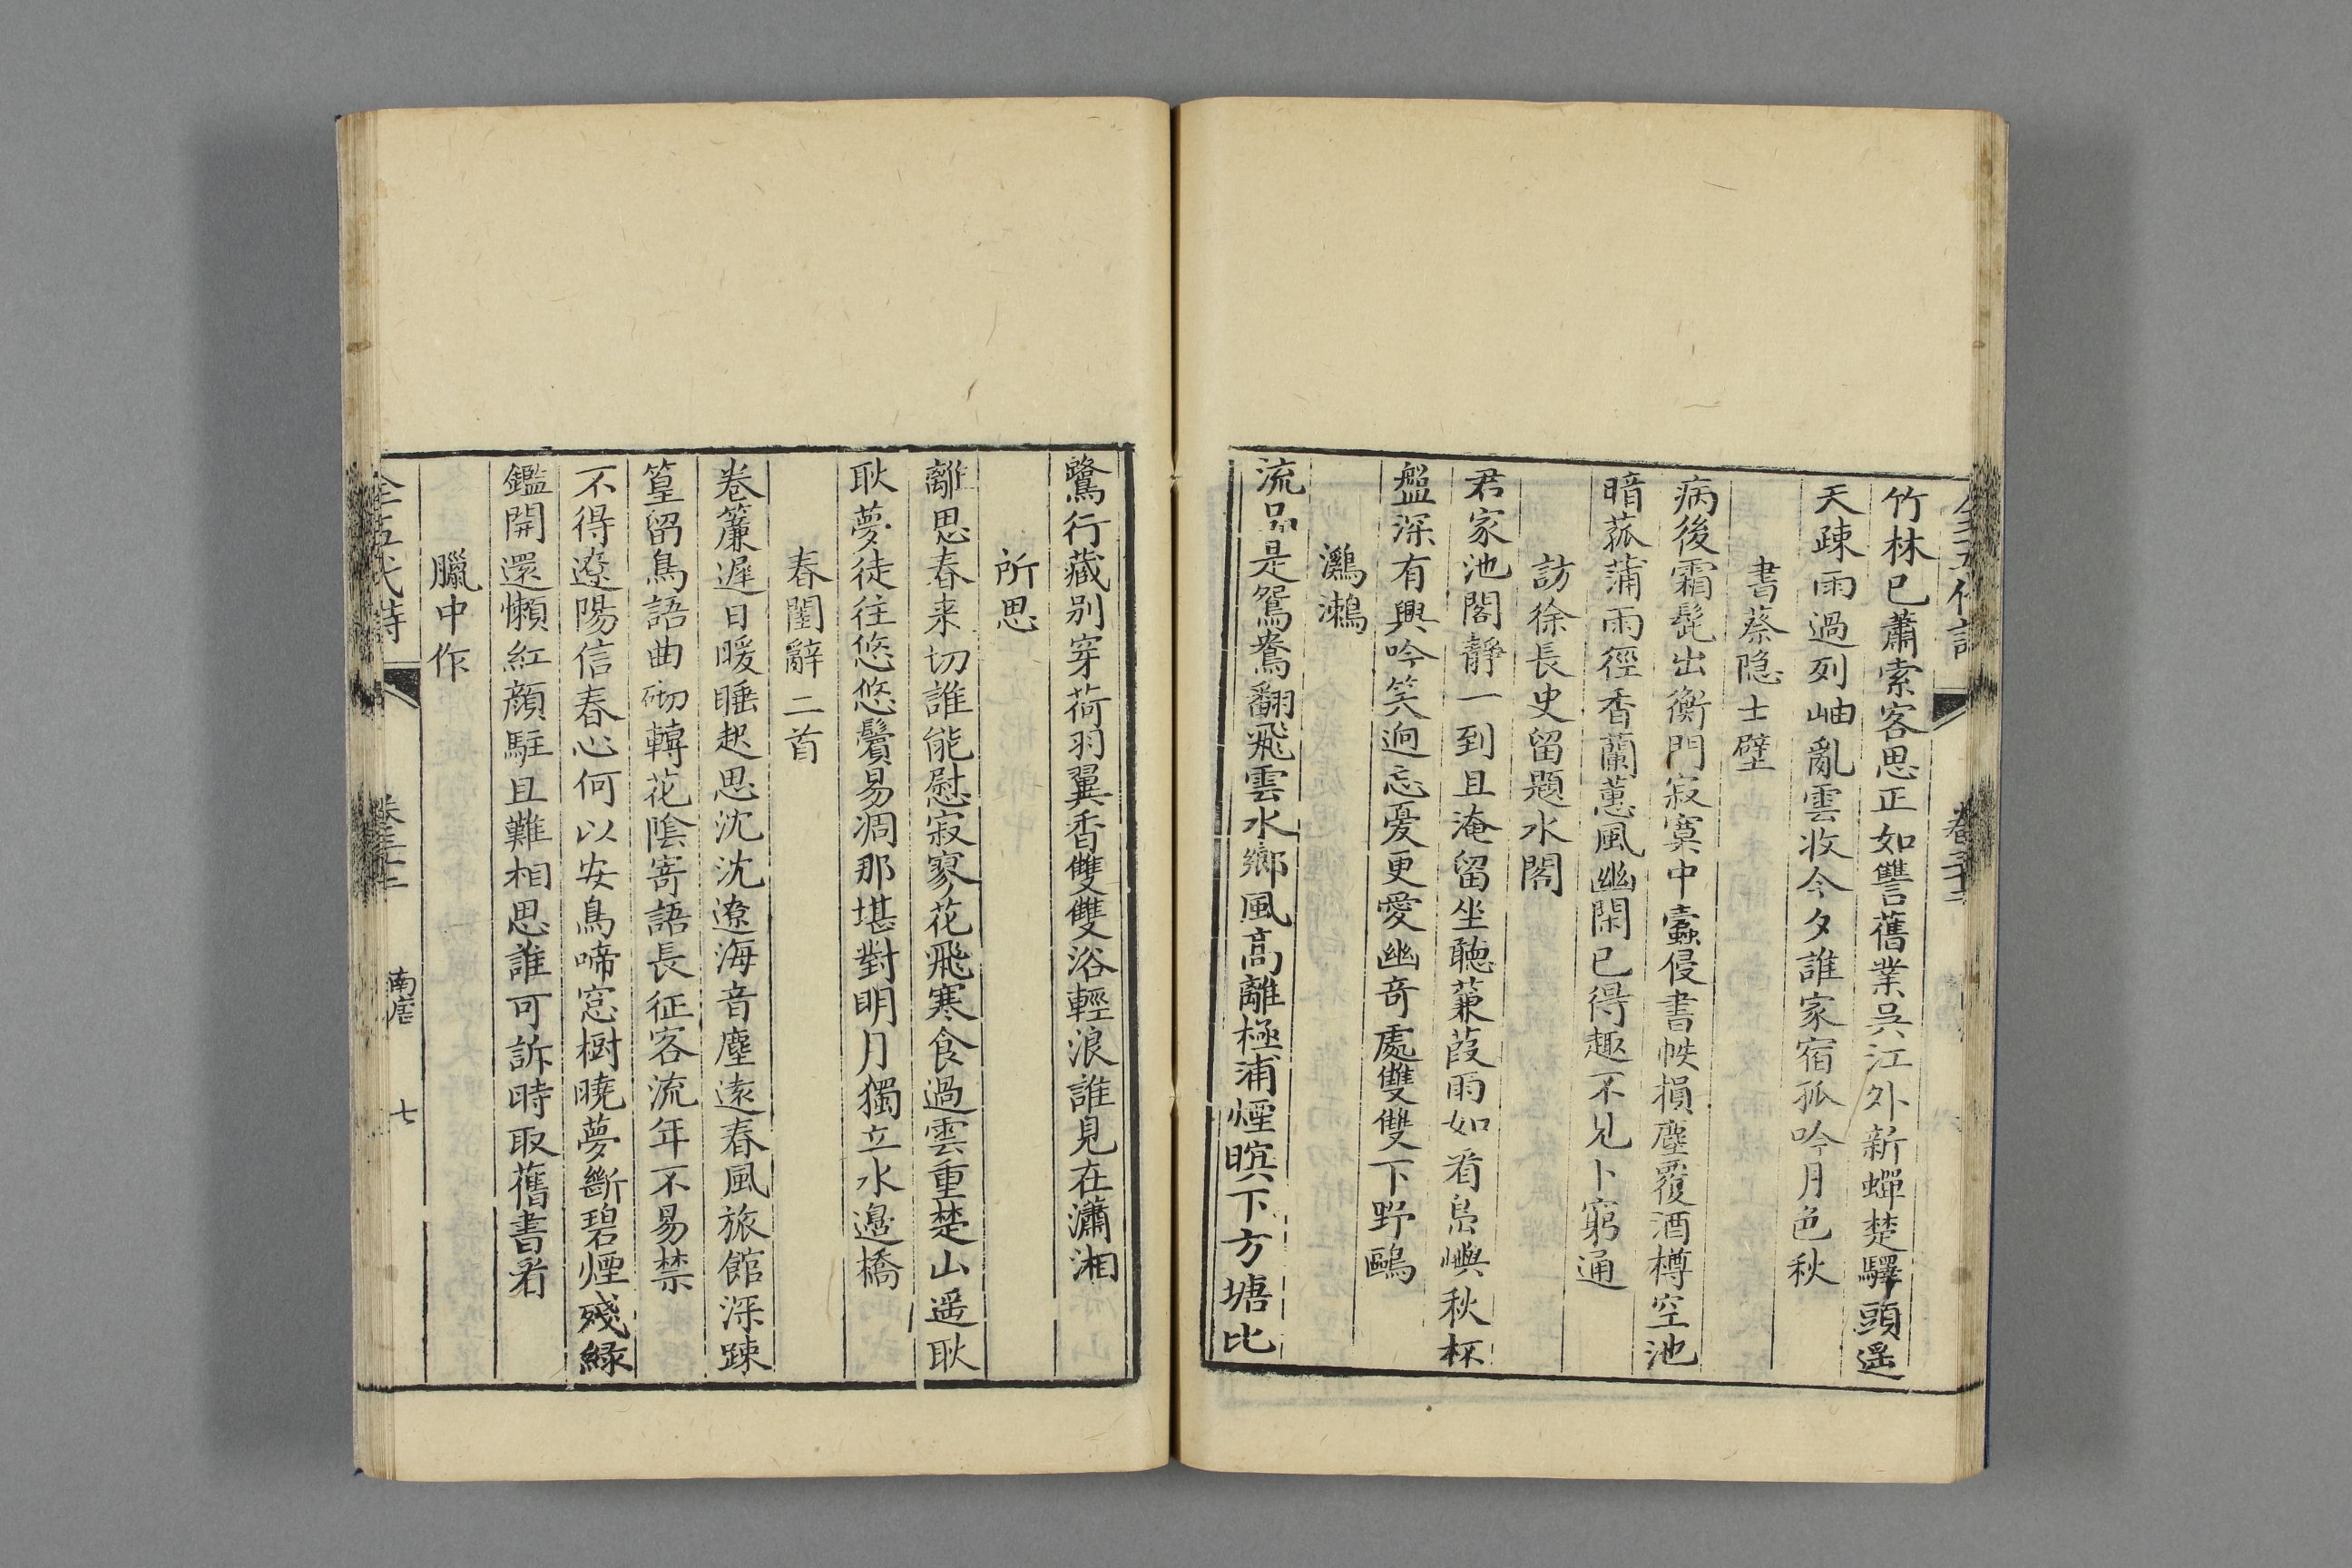 竹林已蕭索客思正如讐舊業吳江外新蟬楚驛頭遥
天疎雨過列岫亂雲收今夕誰家宿孤吟月色秋
書蔡隐士壁
病後霜髭出衡門寂寞中蠹侵書帙損塵覆酒樽空池
暗菰蒲雨徑香蘭蕙風幽閑已得趣不見卜窮通
訪徐長史留題水閣
君家池閣靜一到且淹留坐聴蒹葭雨如看島嶼秋杯
盤深有興吟笑逈忘憂更愛幽奇處雙雙下野鷗
鸂鶒
流品是鴛鴦翻飛雲水鄉風高離極浦煙暝下方塘比
鷺行藏别穿荷羽翼香雙雙浴輕浪誰見在瀟湘
所思
離思春来切誰能慰寂寥花飛寒食過雲重楚山遥耿
耿夢徒往悠悠鬢易凋那堪對明月獨立水邉橋
春閨辭二首
卷簾遲日暖睡起思沈沈遼海音塵逺春風旅館深踈
篁留鳥語曲砌轉花陰寄語長征客流年不易禁
不得遼陽信春心何以安鳥啼窓樹曉夢斷碧煙殘緑
鑑開還懶紅顔駐且難相思誰可訴時取舊書看
臘中作
全五代詩
南唐
七